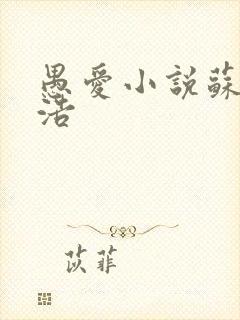 愚愛小說蘇
活
苡菲